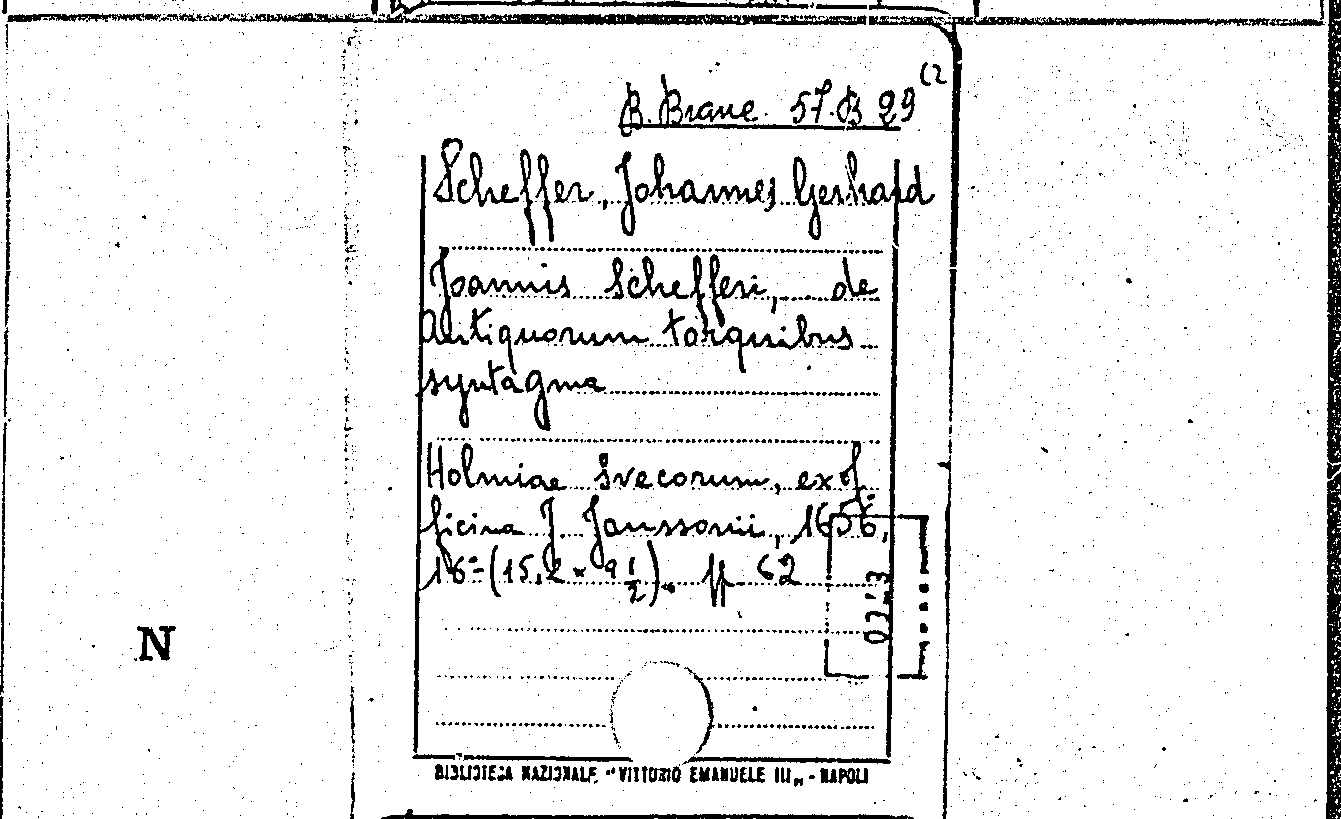 B. Branc. 57. B 29 (2
Scheffer, Johannes Gerhard
Joannis Schefferi, de
Antiquorum torquibus
syntagma
Holmiae Svecorum, ex of
ficina J. Janssonii, 1656,
16°-(15,2 × 9 1/2). pp 62
N
BIBLIOTECA NAZIONALE "VITTORIO EMANUELE III" - NAPOLI